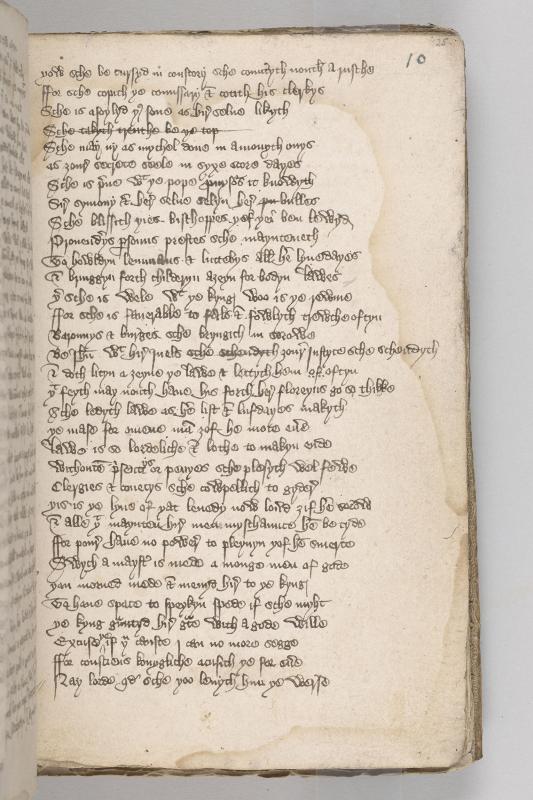 25
10
yow sche be cursyd in constory sche countyth nouth a rusche
ffor sche copith ye comissary & cotith his clerkys
Sche is asoylyd ys sone as hir selue likyth
Sche may ny as mychel done in a monyth onys
as zour secrete seele in syxe score dayes
Sche is p'ue wt ye pope it knowyth
Sir symony & her selue selyn her bulles
Sche blissith yies bisshoppes yof yei ben lewyd
Prouendrys p'sonus prestes sche maynteneth
To howldyn lemmans & lottebys all her lyuedayes
& bringgyn forth childeryn azeyn for bodyn lawes
yr sche is wele wt ye kyng woo is ye rewme
ffor sche is fauerable to fals & fowlyth trewthe oftyn
Baronnys & burges sche bryngith in sorowe
Be wt hir iuels zour iustyce sche schendyth
& doth lityn azeyne ye lawe & lettyth hem of oftyn
yt feyth may nouth haue his forth her floreyns go so thikke
Sche ledyth lawe as he list & lufdayes makyth
ye mase for mene ma zof he mote eue
Lawe is so lordeliche & lothe to makyn ende
withoute p'sentys or penyes sche plesyth wel fewe
Clergies & couetys sche cowpellith to gyder
yis is ye lyue of yat lenedy now lord zif he
& alle yt maynten hir men myschaunce he be tyde
ffor pour haue no power to pleynyn yof he smerte
Swych a mayster is mede a monge men of gode
yan morned mede & menyd hir to ye kyng
To haue space to spekyn spede if sche myht
ye kyng grauntyd hir grace with a gode wille
Excuse ye if yu canste i can no more segge
ffor consciens acusith ye for eue
Nay lorde qd sche yoo leuyth hym ye werse